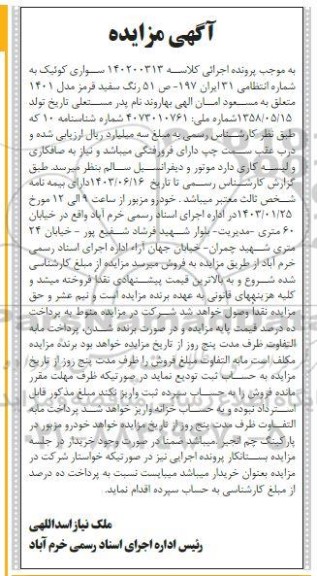 آگهی مزایده
به موجب پرونده اجرائی کلاسه ۱۴۰۲۰۰۳۱۳ سواری کوئیک به
شماره انتظامی ۳۱ ایران ۱۹۷- ص ۵۱ رنگ سفید قرمز مدل ۱۴۰۱
متعلق به مسعود امان الهی بهاروند نام پدر مستعلی تاریخ تولد
۱۳۵۸/۰۵/۱۵شماره ملی: ۴۰۷۳۰۱۰۷۶۱ شماره شناسنامه ۱۰ که
طبق نظر کارشناس رسمی به مبلغ سه میلیارد ریال ارزیابی شده و
درب عقب سمت چپ دارای فرورفتگی میباشد و نیاز به صافکاری
و لیسه کاری دارد موتور و دیفرانسیل سالم بنظر میرسد طبق
گزارش کارشناس رسمی تا تاریخ ۱۴۰۳/۰۶/۱۶دارای بیمه نامه
شخص ثالث معتبر میباشد . خودرو مزبور از ساعت ۹ الی ۱۲ مورخ
۱۴۰۳/۰۱/۲۵در اداره اجرای اسناد رسمی خرم آباد واقع در خیابان
۶۰ متری -مدیریت- بلوار شهید فرشاد شفیع پور - خیابان ۲۴
متری شهید چمران- خیابان جهان آراء اداره اجرای اسناد رسمی
خرم آباد از طریق مزایده به فروش میرسد مزایده از مبلغ کارشناسی
شده شروع و به بالاترین قیمت پیشنهادی نقدا فروخته میشد و
کلیه هزینههای قانونی به عهده برنده مزایده است و نیم عشر و حق
مزایده نقدا وصول خواهد شد شرکت در مزایده منوط به پرداخت
ده درصد قیمت پایه مزایده و در صورت برنده شدن، پرداخت مابه
التفاوت ظرف مدت پنج روز از تاریخ مزایده خواهد بود برنده مزایده
مکلف است مابه التفاوت مبلغ فروش را ظرف مدت پنج روز از تاریخ
مزایده به حساب ثبت تودیع نماید در صورتیکه ظرف مهلت مقرر
مانده فروش را به حساب سپرده ثبت واریز نکند مبلغ مذکور قابل
استرداد نبوده و به حساب خزانه واریز خواهد شد پرداخت مابه
التفاوت ظرف مدت پنج روز از تاریخ مزایده خواهد خودرو مزبور در
پارکینگ چم انجیر میباشد ضمنا در صورت وجود خریدار در جلسه
مزایده بستانکار پرونده اجرایی نیز در صورتیکه خواستار شرکت در
مزایده بعنوان خریدار میباشد میبایست نسبت به پرداخت ده درصد
از مبلغ کارشناسی به حساب سپرده اقدام نماید.
ملک نیاز اسداللهی
رئیس اداره اجرای اسناد رسمی خرم آباد